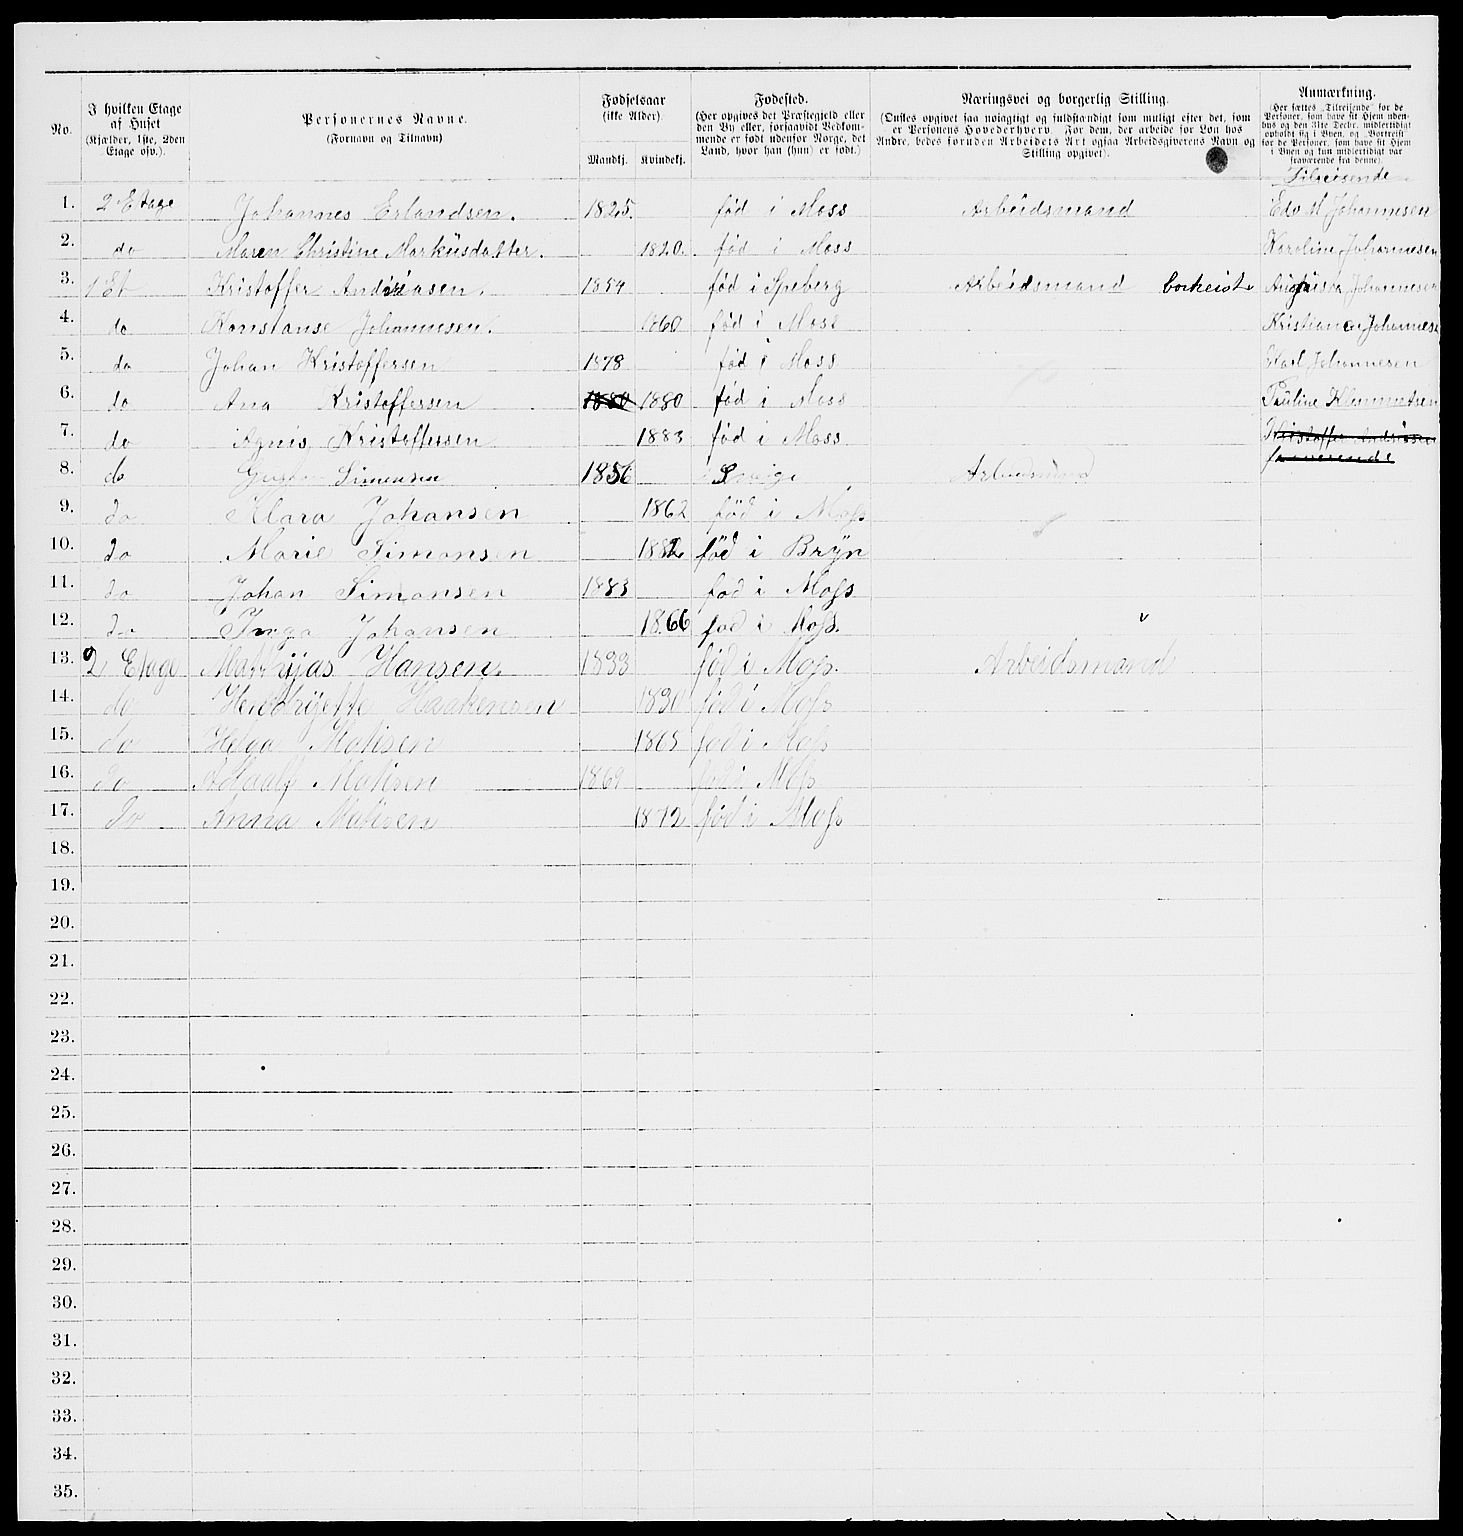 No.
I hvilken Etage af Huset (Kjælder, 1ste, 2den Etage osv.).
Personernes Navne. (Fornavn og Tilnavn)
Fødselsaar (ikke Alder).
Mandkj. Kvindekj.
Fødested. (Her opgives det Præstegjeld eller den By eller, forsaavidt Vedkommende er født udenfor Norge, det Land, hvor han (hun) er født.)
Næringsvei og borgerlig Stilling. (Ønskes opgivet saa nøiagtigt og fuldstændigt som muligt efter det, som er Personens Hovederhverv. For dem, der arbeide for Løn hos Andre, bedes foruden Arbeidets Art ogsaa Arbeidsgiverens Navn og Stilling opgivet).
Anmærkning. (Her sættes „Tilreisende" for de Personer, som have sit Hjem udenbys og den 31te Decbr. midlertidigt opholdt sig i Byen, og „Bortreist" for de Personer, som have sit Hjem i Byen og kun midlertidigt var fraværende fra denne).
Tilreisende
1. 2 Etage Johannes Erlandsen. 1825. fød i Moss Arbeidsmand Edv M Johannesen
2. do Maren Christine Markusdatter. 1820. fød i Moss Karoline Johannesen
3. 1 Et Kristoffer Andriasen. 1854 fød i Speberg Arbeidsmand borheist Augusta Johannesen
4. do Konstanse Johannesen. 1860 fød i Moss Kristiane Johannes
5. do Johan Kristoffersen 1878 fød i Moss Karl Johannesen
6. do Ana Kristoffersen 1880 1880 fød i Moss Pauline Klemmetsen
7. do Agnis Kristoffersen 1883 fød i Moss Kristoffer Andriasen
fraverende
8. do Simensen 1856 Arbeidsmand
9. do Klara Johansen 1862 fød i Moss
10. do Marie Simonsen 1882 fød i Bryn
11. do Johan Simonsen 1883 fød i Moss
12. do Inga Johansen 1866 fød i Moss.
13. 2 Etage Mathijas Hansen. 1833 fød i Moss. Arbeidsmand
14. do Haakensen 1830 fød i Moss
15. do Helga Matisen 1865 fød i Moss
16. do Matisen 1869 fød i Moss
17. do Anna Matisen 1872 fød i Moss
18.
19.
20.
21.
22.
23.
24.
25.
26.
27.
28.
29.
30.
31.
32.
33.
34.
35.